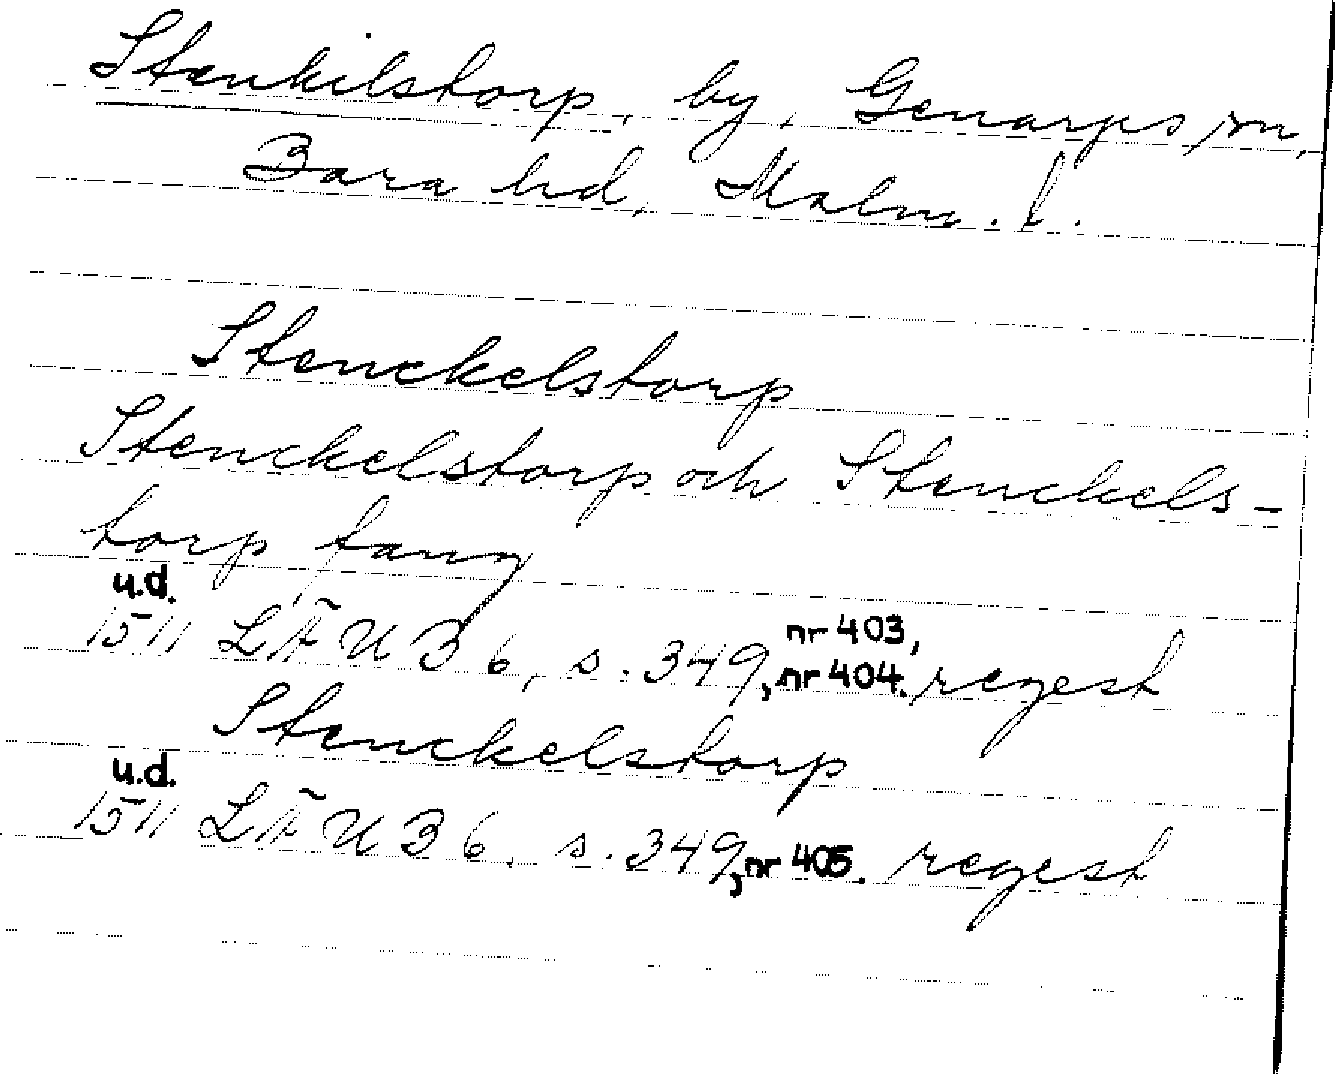 Stenkilstorp, by, Genarps sn,
Bara hd, Malm. l.
Stenckelstorp
Stenckelstorp och Stenckels-
torp fang
u.d.
1511 LÄU 3 6, s. 349, nr 403,
nr 404. regest
Stenckelstorp
u.d.
1511 LÄU 3 6. s. 349, nr 405. regest